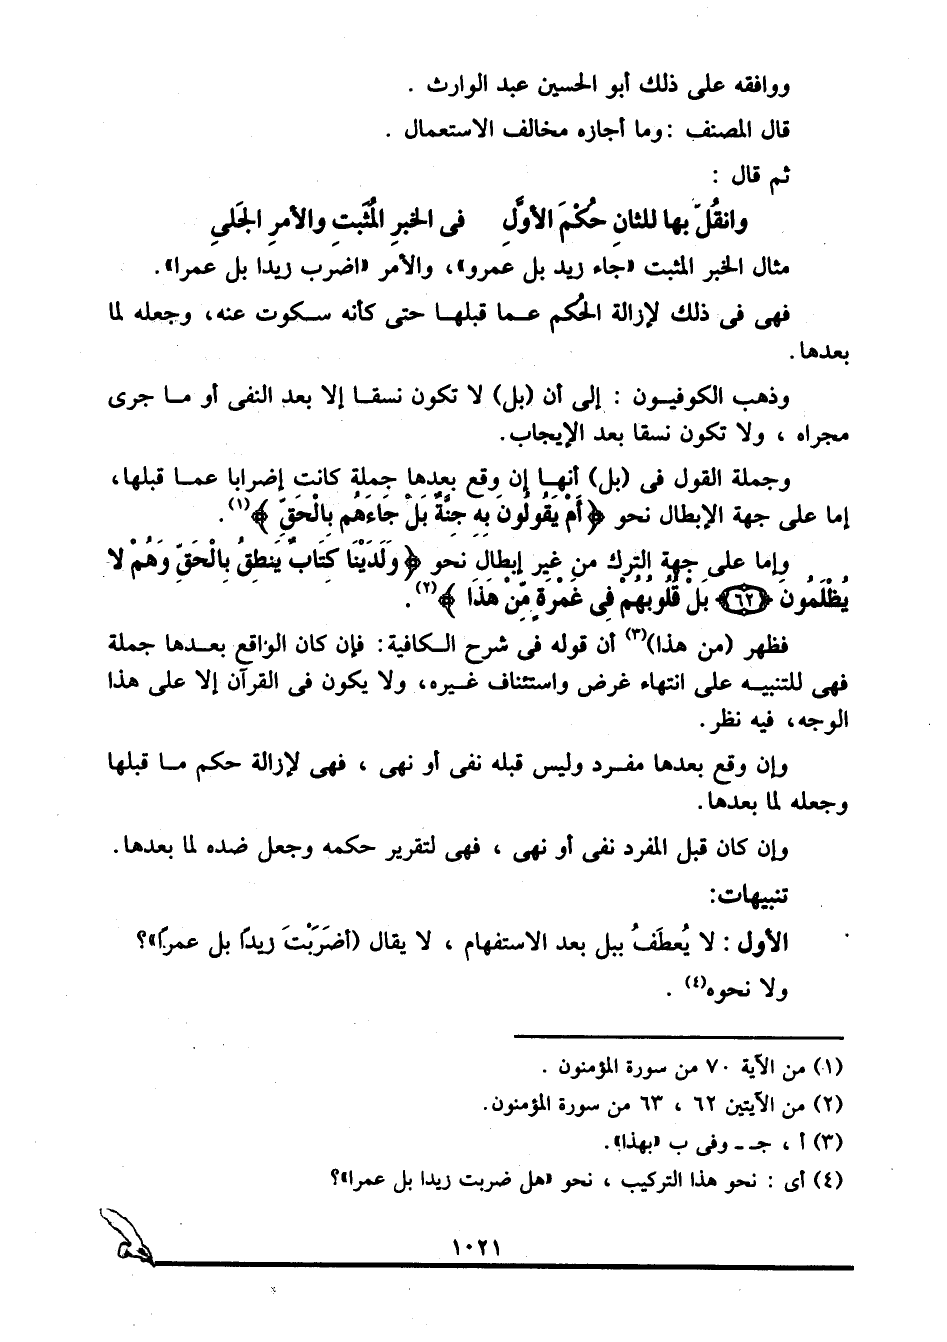 ووافقه على ذلك أبو الحسين عبد الوارث .
قال المصنف : وما أجازه مخالف الاستعمال .
ثم قال :
وانقُلْ بها للثانِ حُكْمَ الأوَّلِ فى الخبرِ المُثبَتِ والأمرِ الجَلى
مثال الخبر المثبت «جاء زيد بل عمرو»، والأمر «اضرب زيدا بل عمرا».
فهى فى ذلك لإزالة الحُكم عما قبلها حتى كأنه سكوت عنه، وجعله لما
بعدها.
وذهب الكوفيون : إلى أن (بل) لا تكون نسقا إلا بعد النفى أو ما جرى
مجراه ، ولا تكون نسقا بعد الإيجاب.
وجملة القول فى (بل) أنها إن وقع بعدها جملة كانت إضرابا عما قبلها،
إما على جهة الإبطال نحو ﴿أَمْ يَقُولُونَ بِهِ جِنَّةٌ بَلْ جَاءَهُم بِالْحَقِّ﴾(١).
وإما على جهة الترك من غير إبطال نحو ﴿وَلَدَيْنَا كِتَابٌ يَنطِقُ بِالْحَقِّ وَهُمْ لا
يُظْلَمُونَ ﴿٦٢﴾ بَلْ قُلُوبُهُمْ فِى غَمْرَةٍ مِّنْ هَذَا﴾(٢).
فظهر (من هذا)(٣) أن قوله فى شرح الكافية: فإن كان الواقع بعدها جملة
فهى للتنبيه على انتهاء غرض واستئناف غيره، ولا يكون فى القرآن إلا على هذا
الوجه، فيه نظر.
وإن وقع بعدها مفرد وليس قبله نفى أو نهى ، فهى لإزالة حكم ما قبلها
وجعله لما بعدها.
وإن كان قبل المفرد نفى أو نهى ، فهى لتقرير حكمه وجعل ضده لما بعدها.
تنبيهات:
الأول : لا يُعطَفُ ببل بعد الاستفهام ، لا يقال (أضَرَبْتَ زيدًا بل عمرًا»؟
ولا نحوه(٤) .
(١) من الآية ٧٠ من سورة المؤمنون .
(٢) من الآيتين ٦٢ ، ٦٣ من سورة المؤمنون.
(٣) أ ، جـ ـ وفى ب «بهذا».
(٤) أى : نحو هذا التركيب ، نحو «هل ضربت زيدا بل عمرا»؟
١٠٢١